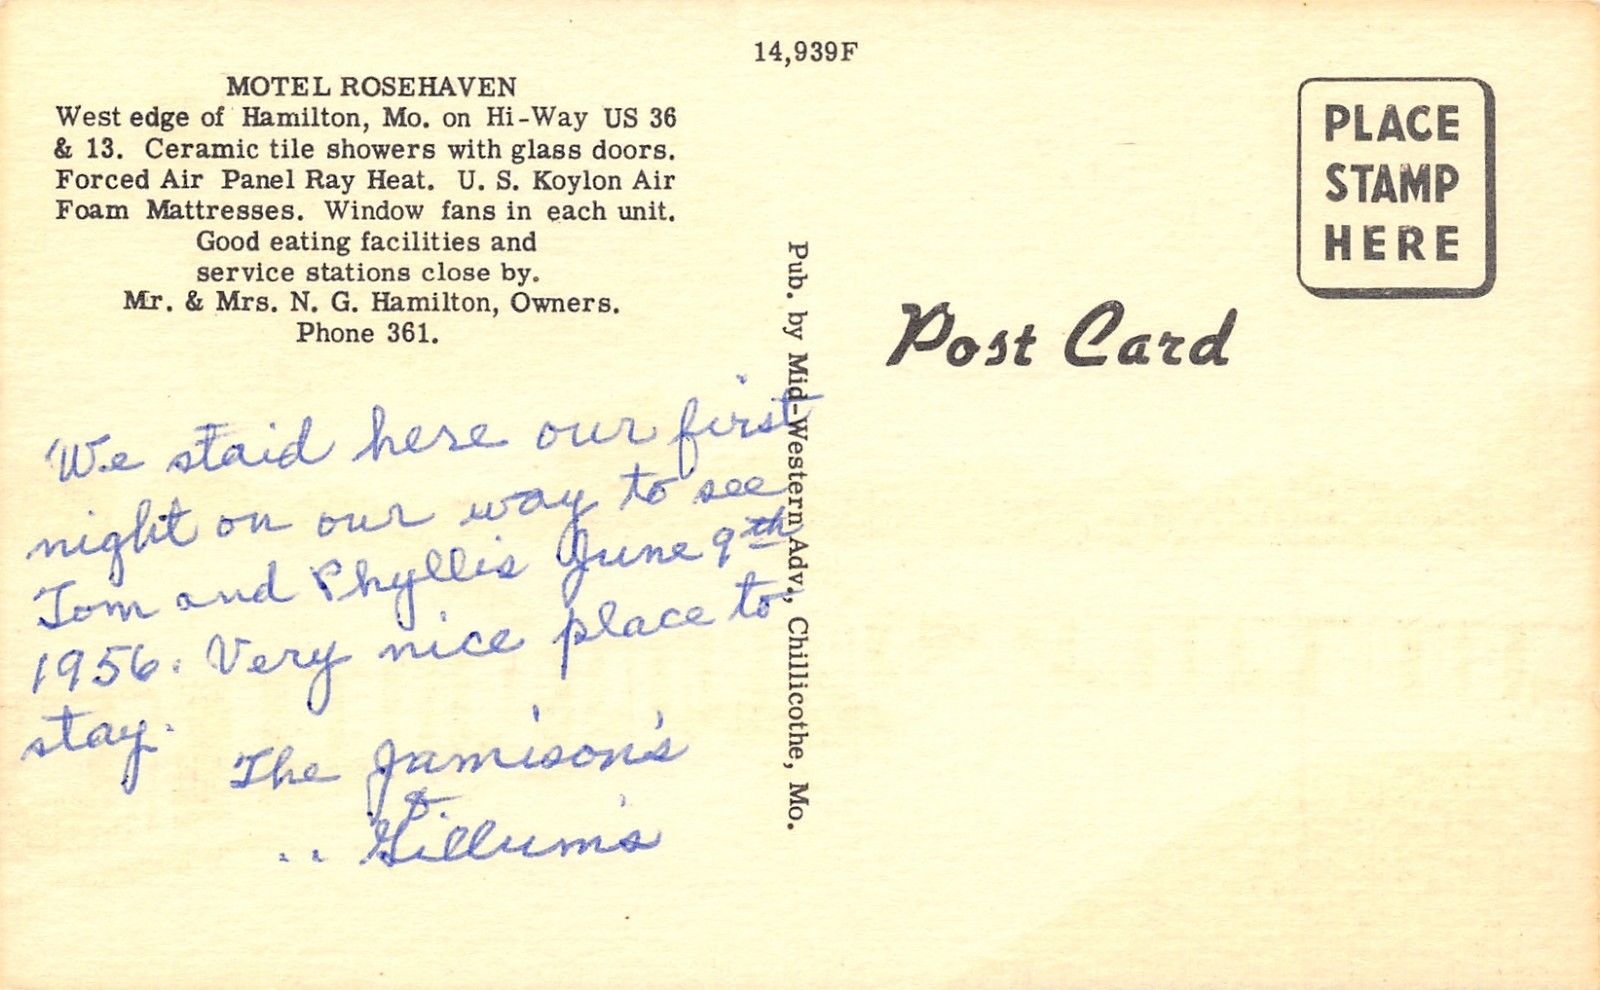 14,939F
MOTEL ROSEHAVEN
West edge of Hamilton, Mo. on Hi-Way US 36
& 13. Ceramic tile showers with glass doors.
Forced Air Panel Ray Heat. U. S. Koylon Air
Foam Mattresses. Window fans in each unit.
Good eating facilities and
service stations close by.
Mr. & Mrs. N. G. Hamilton, Owners.
Phone 361.
We staid here our first
night on our way to see
Tom and Phyllis June 9th
1956. Very nice place to
stay.
The Jamison's
&
.. Gillum's
Pub. by Mid-Western Adv., Chillicothe, Mo.
PLACE
STAMP
HERE
Post Card